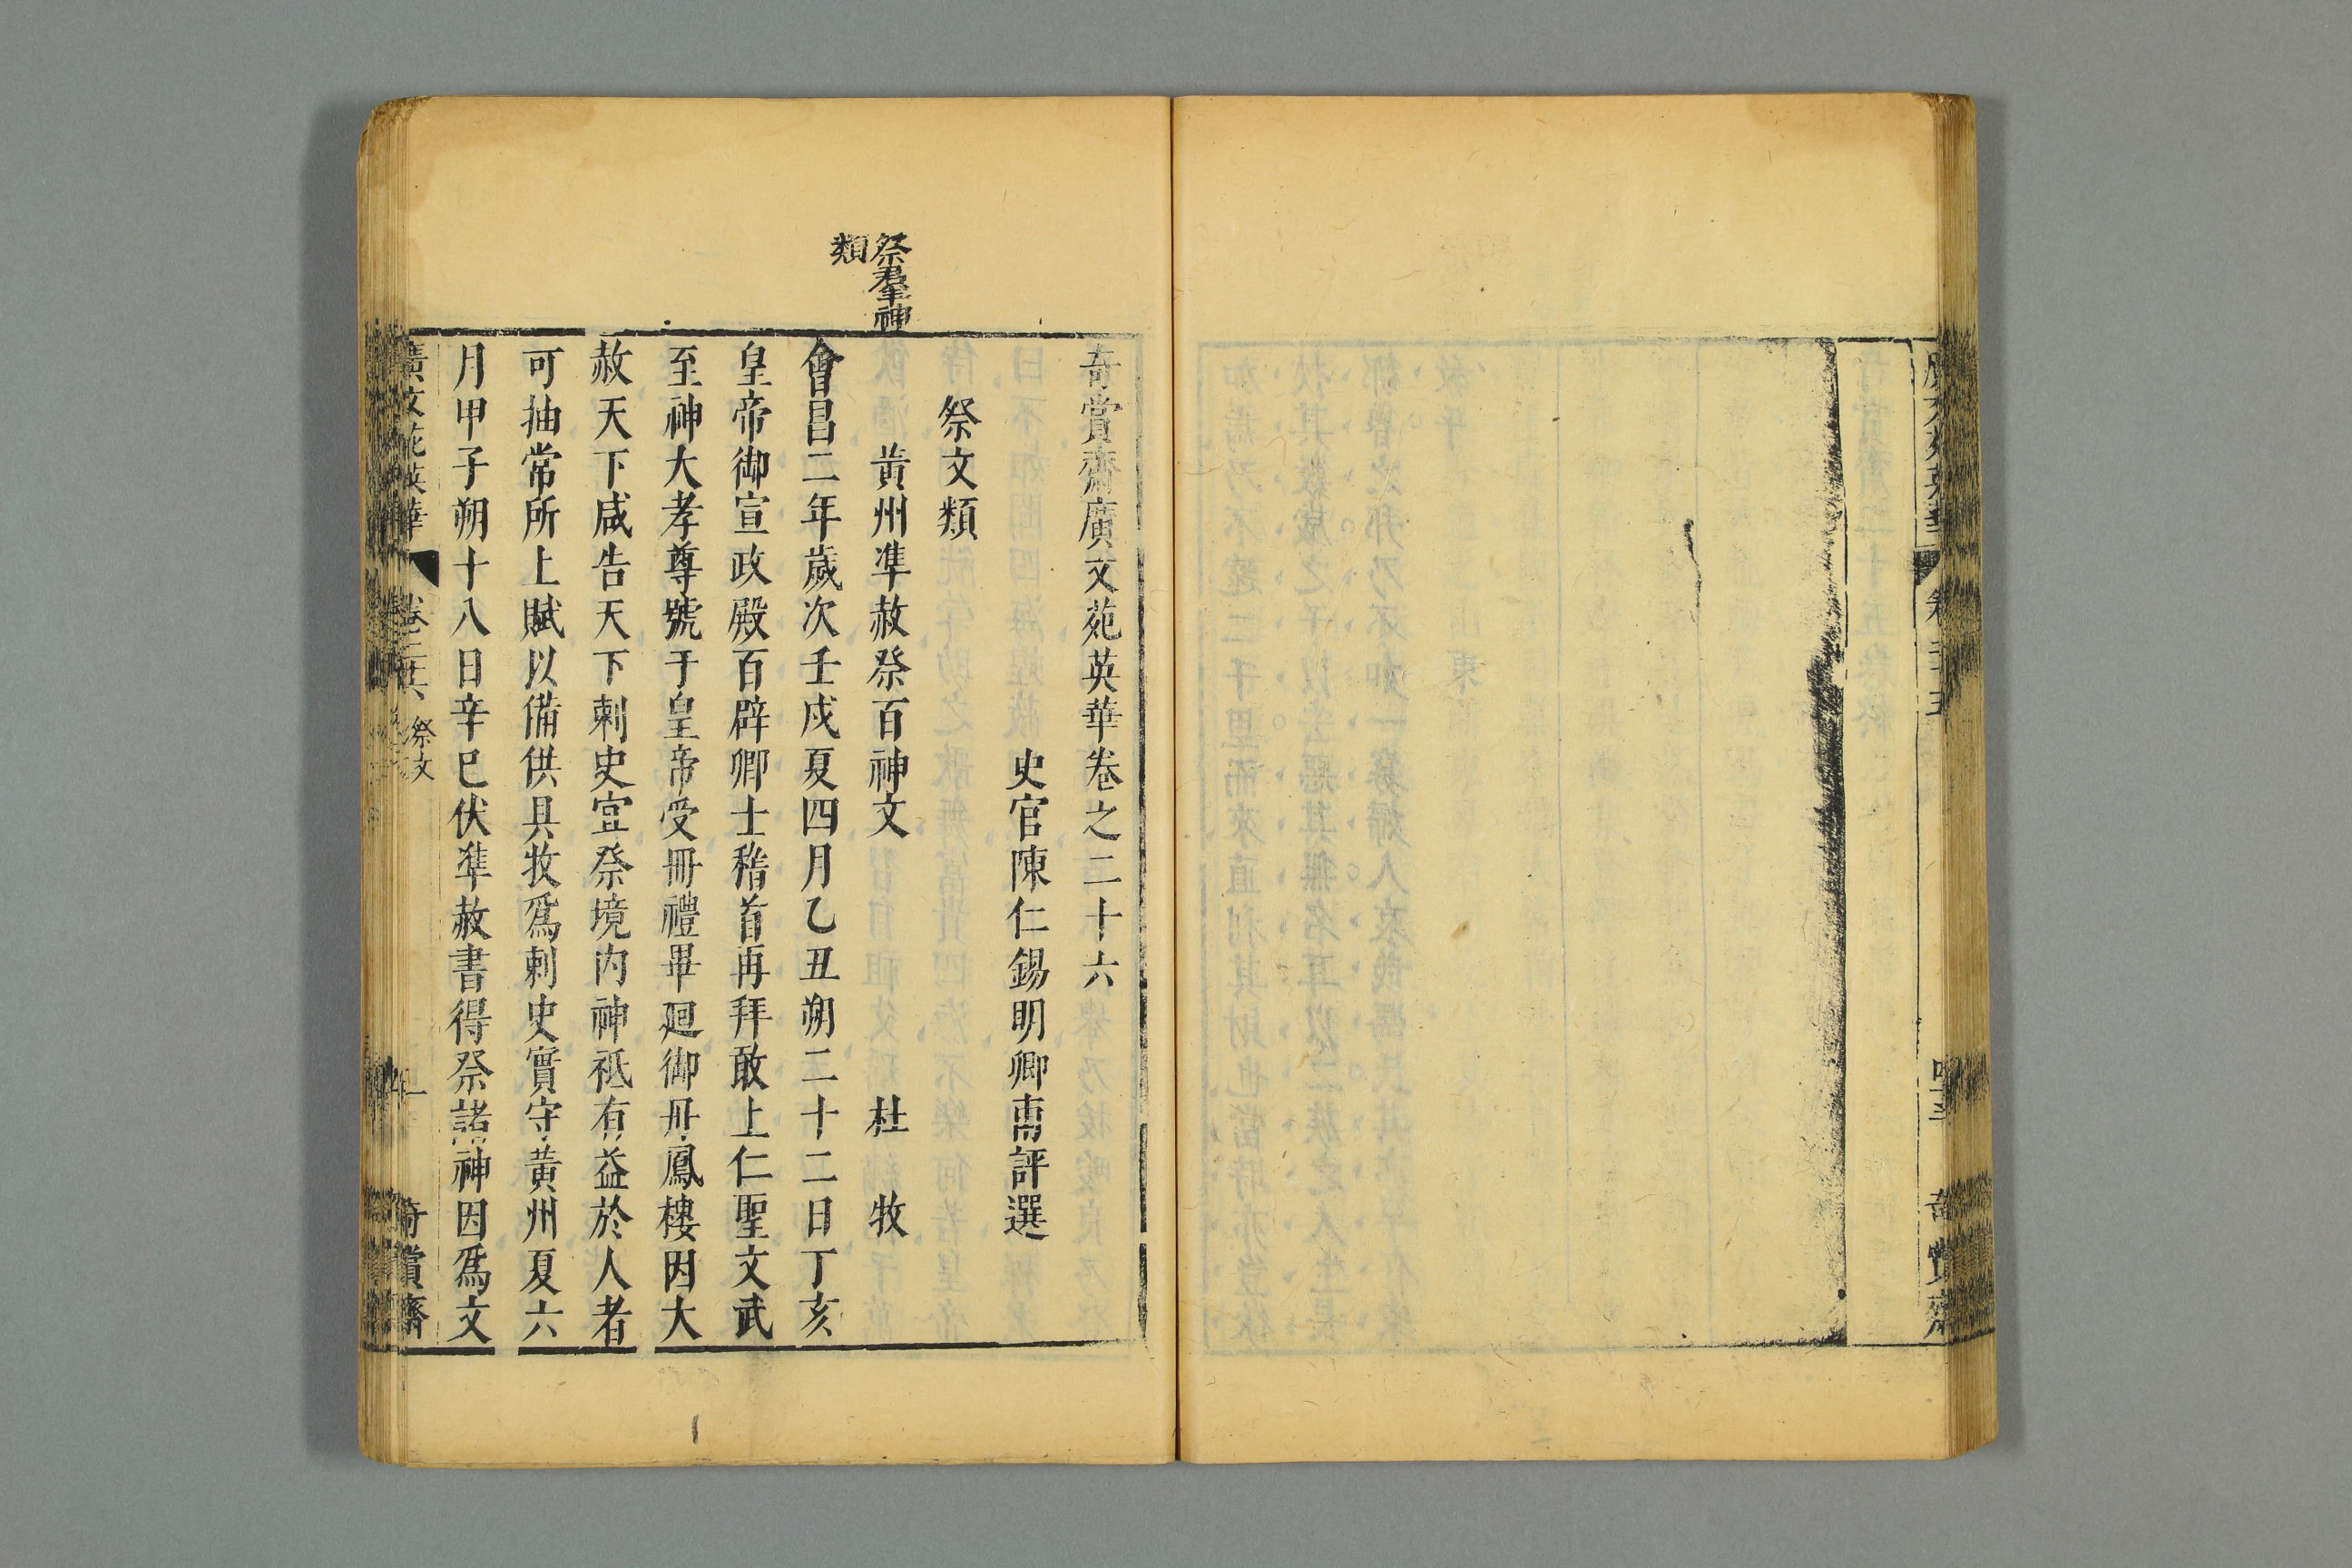 奇賞齋廣文苑英華卷之二十六
史官陳仁錫明卿甫評選
祭文類
祭羣神
類
黃州准赦祭百神文 杜 牧
會昌二年歲次壬戌夏四月乙丑朔二十二日丁亥
皇帝御宣政殿百辟卿士稽首再拜敢上仁聖文武
至神大孝尊號于皇帝受冊禮畢廻御丹鳳樓因大
赦天下咸告天下刺史宜祭境內神祇有益於人者
可抽常所上賦以備供具牧爲刺史實守黃州夏六
月甲子朔十八日辛巳伏準赦書得祭諸神因爲文
廣文苑英華 卷二十六 祭文 一 奇賞齋